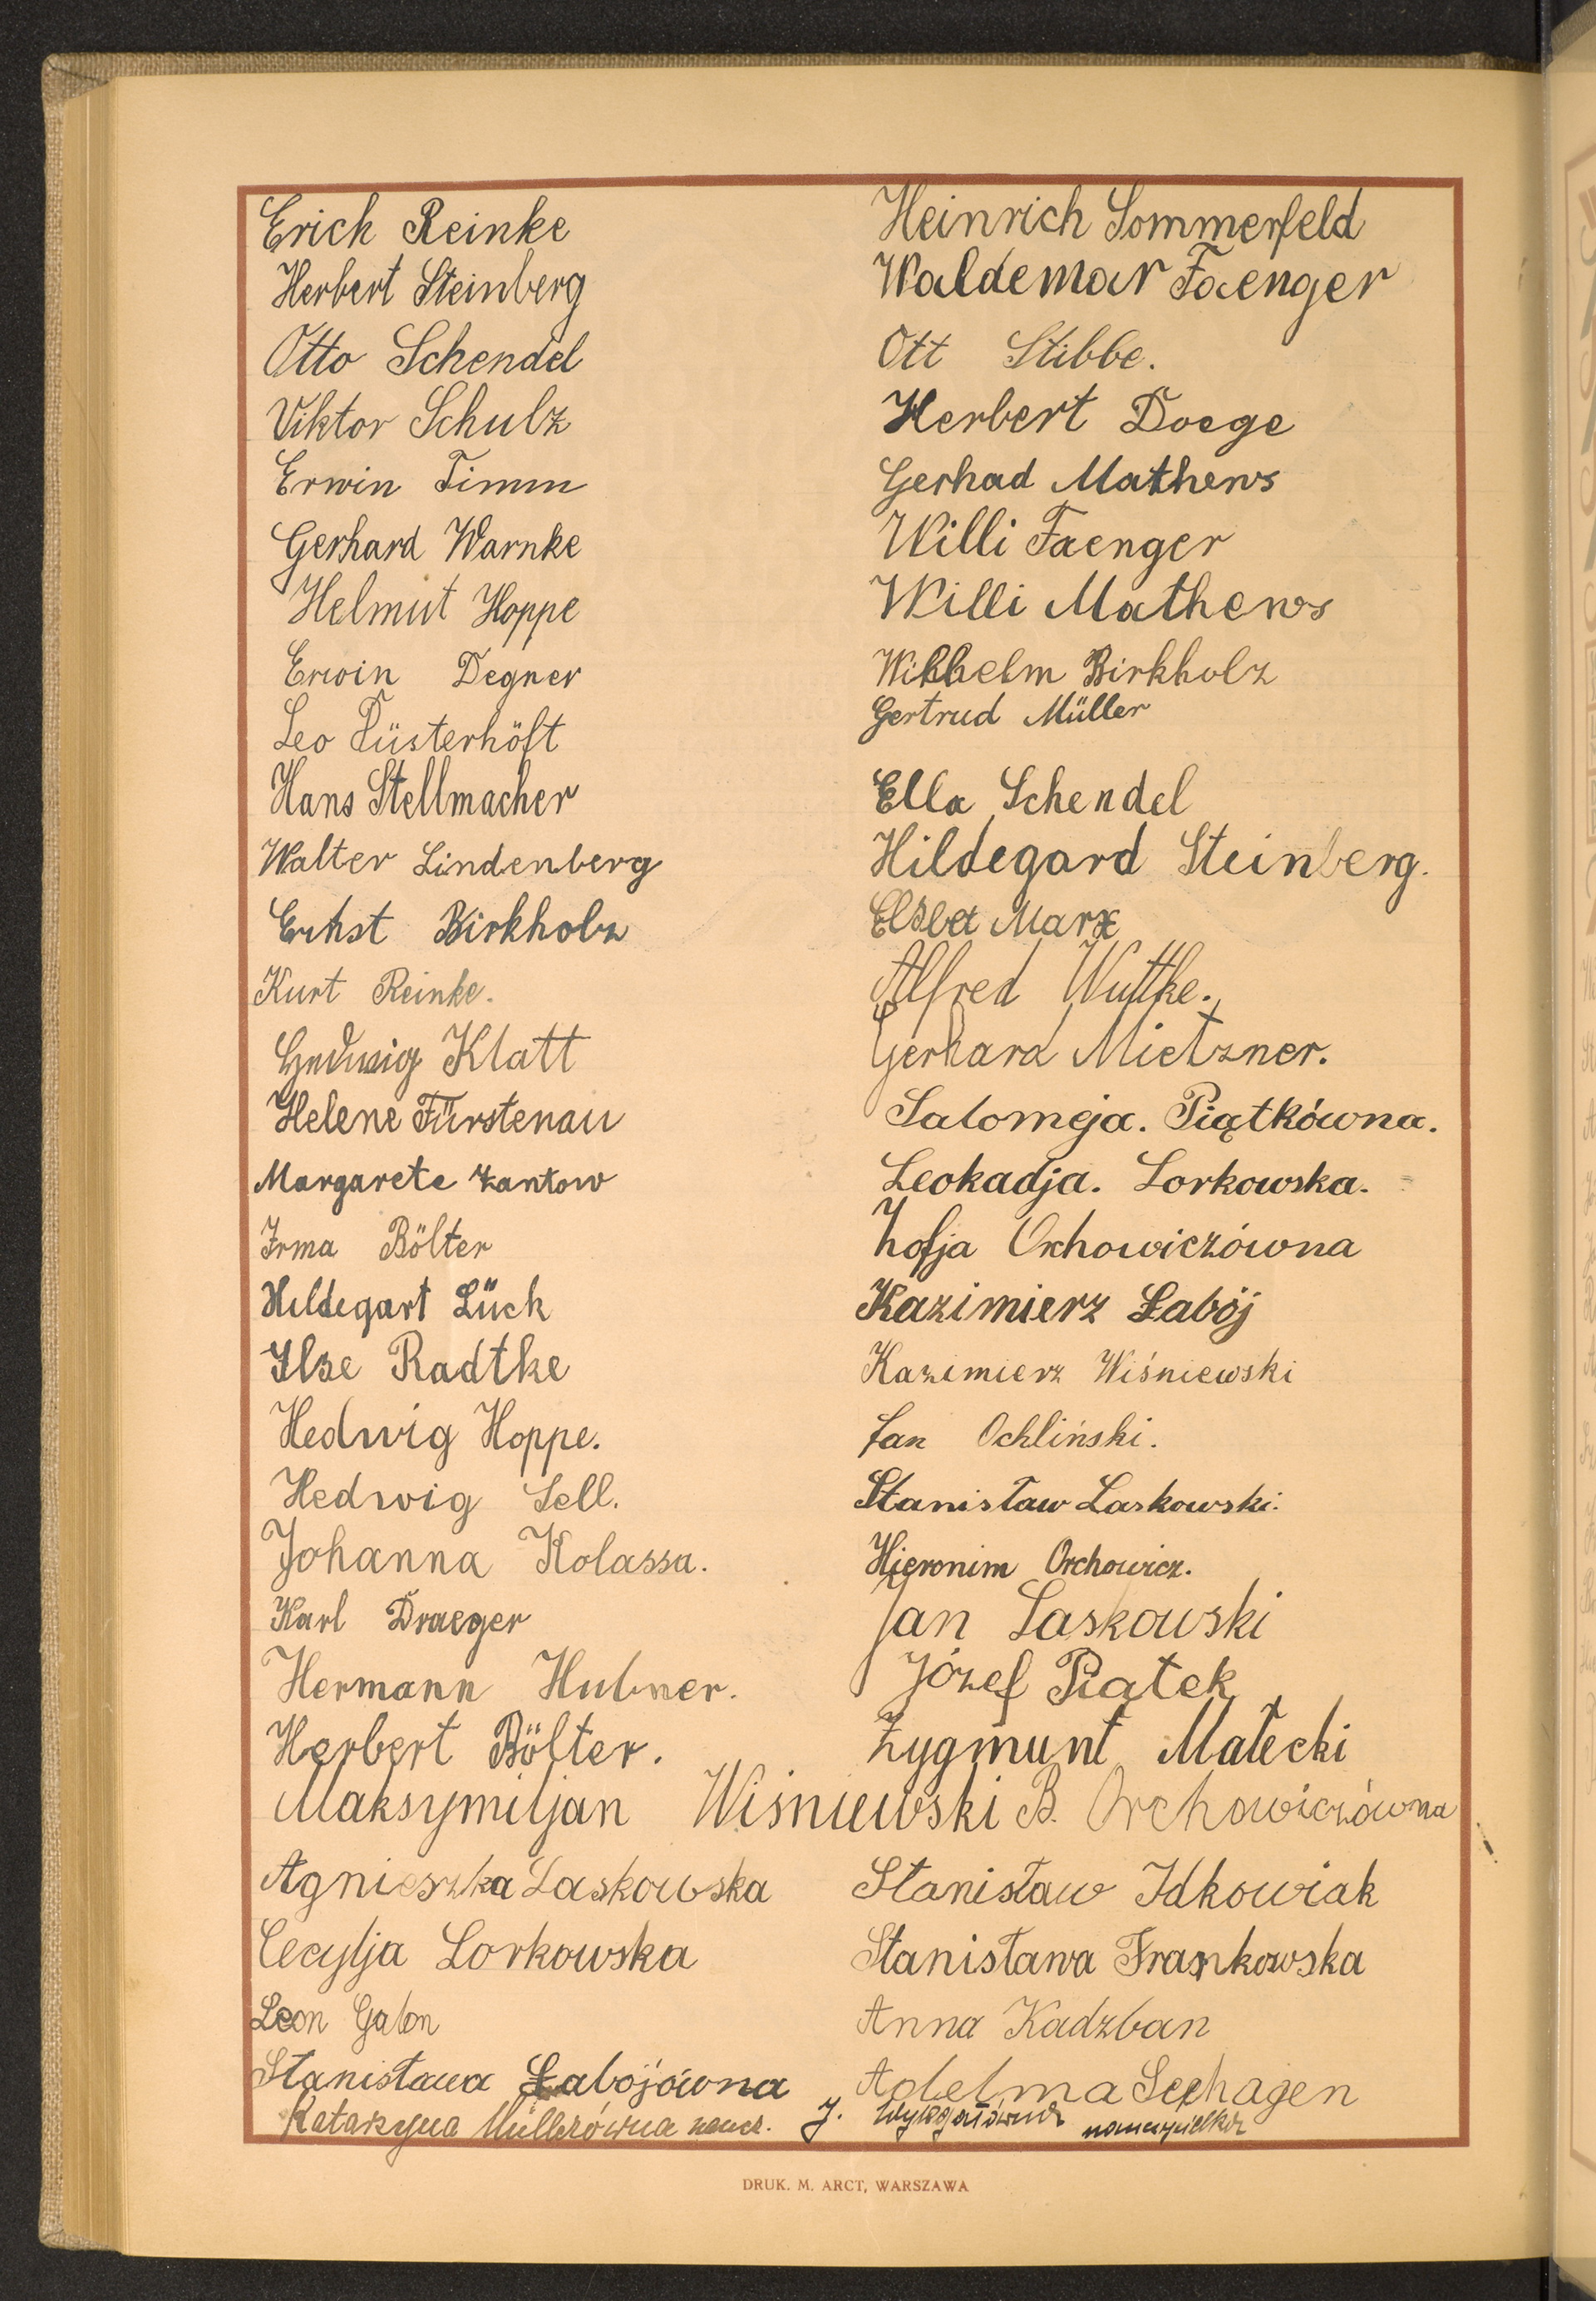 Erich Reinke
Herbert Steinberg
Otto Schendel
Viktor Schulz
Erwin Timm
Gerhard Warnke
Helmut Hoppe
Erwin Degner
Leo Düsterhöft
Hans Stellmacher
Walter Lindenberg
Ernst Birkholz
Kurt Reinke.
Hedwig Klatt
Helene Fürstenau
Margarete Zantow
Irma Bölter
Hildegart Lück
Ilse Radtke
Hedwig Hoppe.
Hedwig Sell.
Johanna Kolassa.
Karl Draeger
Hermann Hubner.
Herbert Bölter.
Maksymiljan Wiśniewski
Agnieszka Laskowska
Cecylja Lorkowska
Leon Gabon
Stanisława Łabojówna
Katarzyna Müllerówna naucz.
Heinrich Sommerfeld
Waldemar Faenger
Ott Stibbe.
Herbert Doege
Gerhad Mathews
Willi Faenger
Willi Mathews
Wilhelm Birkholz
Gertrud Müller
Ella Schendel
Hildegard Steinberg.
Elsbet Marx
Alfred Wuttke.
Gerhard Mietzner.
Salomeja. Piątkówna.
Leokadja. Lorkowska.
Zofja Orchowiczówna
Kazimierz Łabój
Kazimierz Wiśniewski
Jan Ochliński.
Stanisław Laskowski.
Hieronim Orchowicz.
Jan Laskowski
Józef Piątek
Zygmunt Małecki
B. Orchowiczówna
Stanisław Idkowiak
Stanisława Frankowska
Anna Kadzban
Adelma Seehagen
J. nauczycielka
DRUK. M. ARCT, WARSZAWA